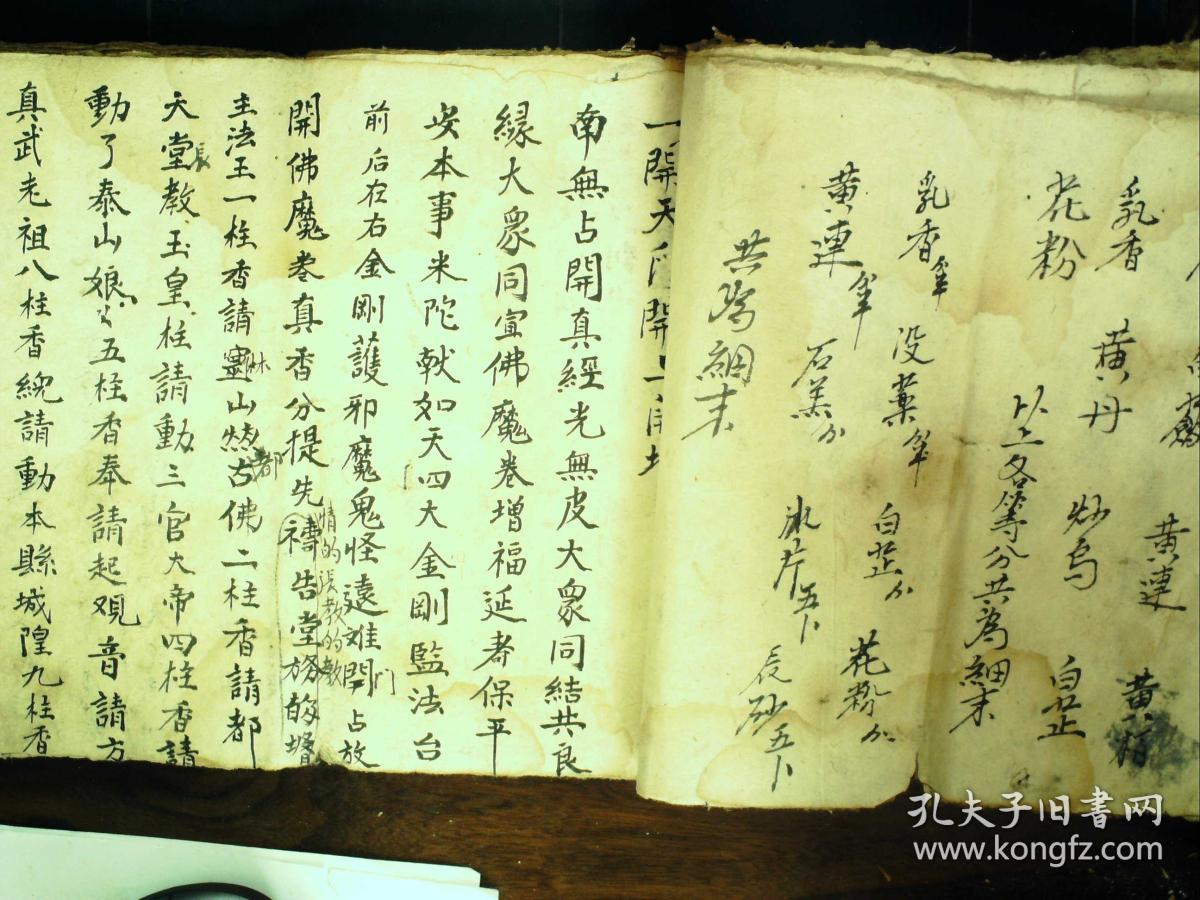 乳香 黄丹 黄連 黄
花粉 炒烏 白芷
以上各等分共為細末
乳香 没薬 白芷 花粉
黄連 石羔 氷片五卜 辰砂五卜
共為細末
一開天 開
南無占開真經光無皮大衆同結共良
縁大衆同宣佛魔卷增福延壽保平
安本事米陀献如天四大金剛監法台
前后在右金剛護邪魔鬼怪遠难開門占放
開佛魔卷真香分提先禱告堂
情的張教的教
主法王一柱香請靈山林然古佛二柱香請都
都
天堂教玉皇柱請動三官大帝四柱香請
長
動了泰山娘々五柱香奉請起观音請方
真武老祖八柱香総請動本縣城隍九柱香
孔夫子旧书网
www.kongfz.com